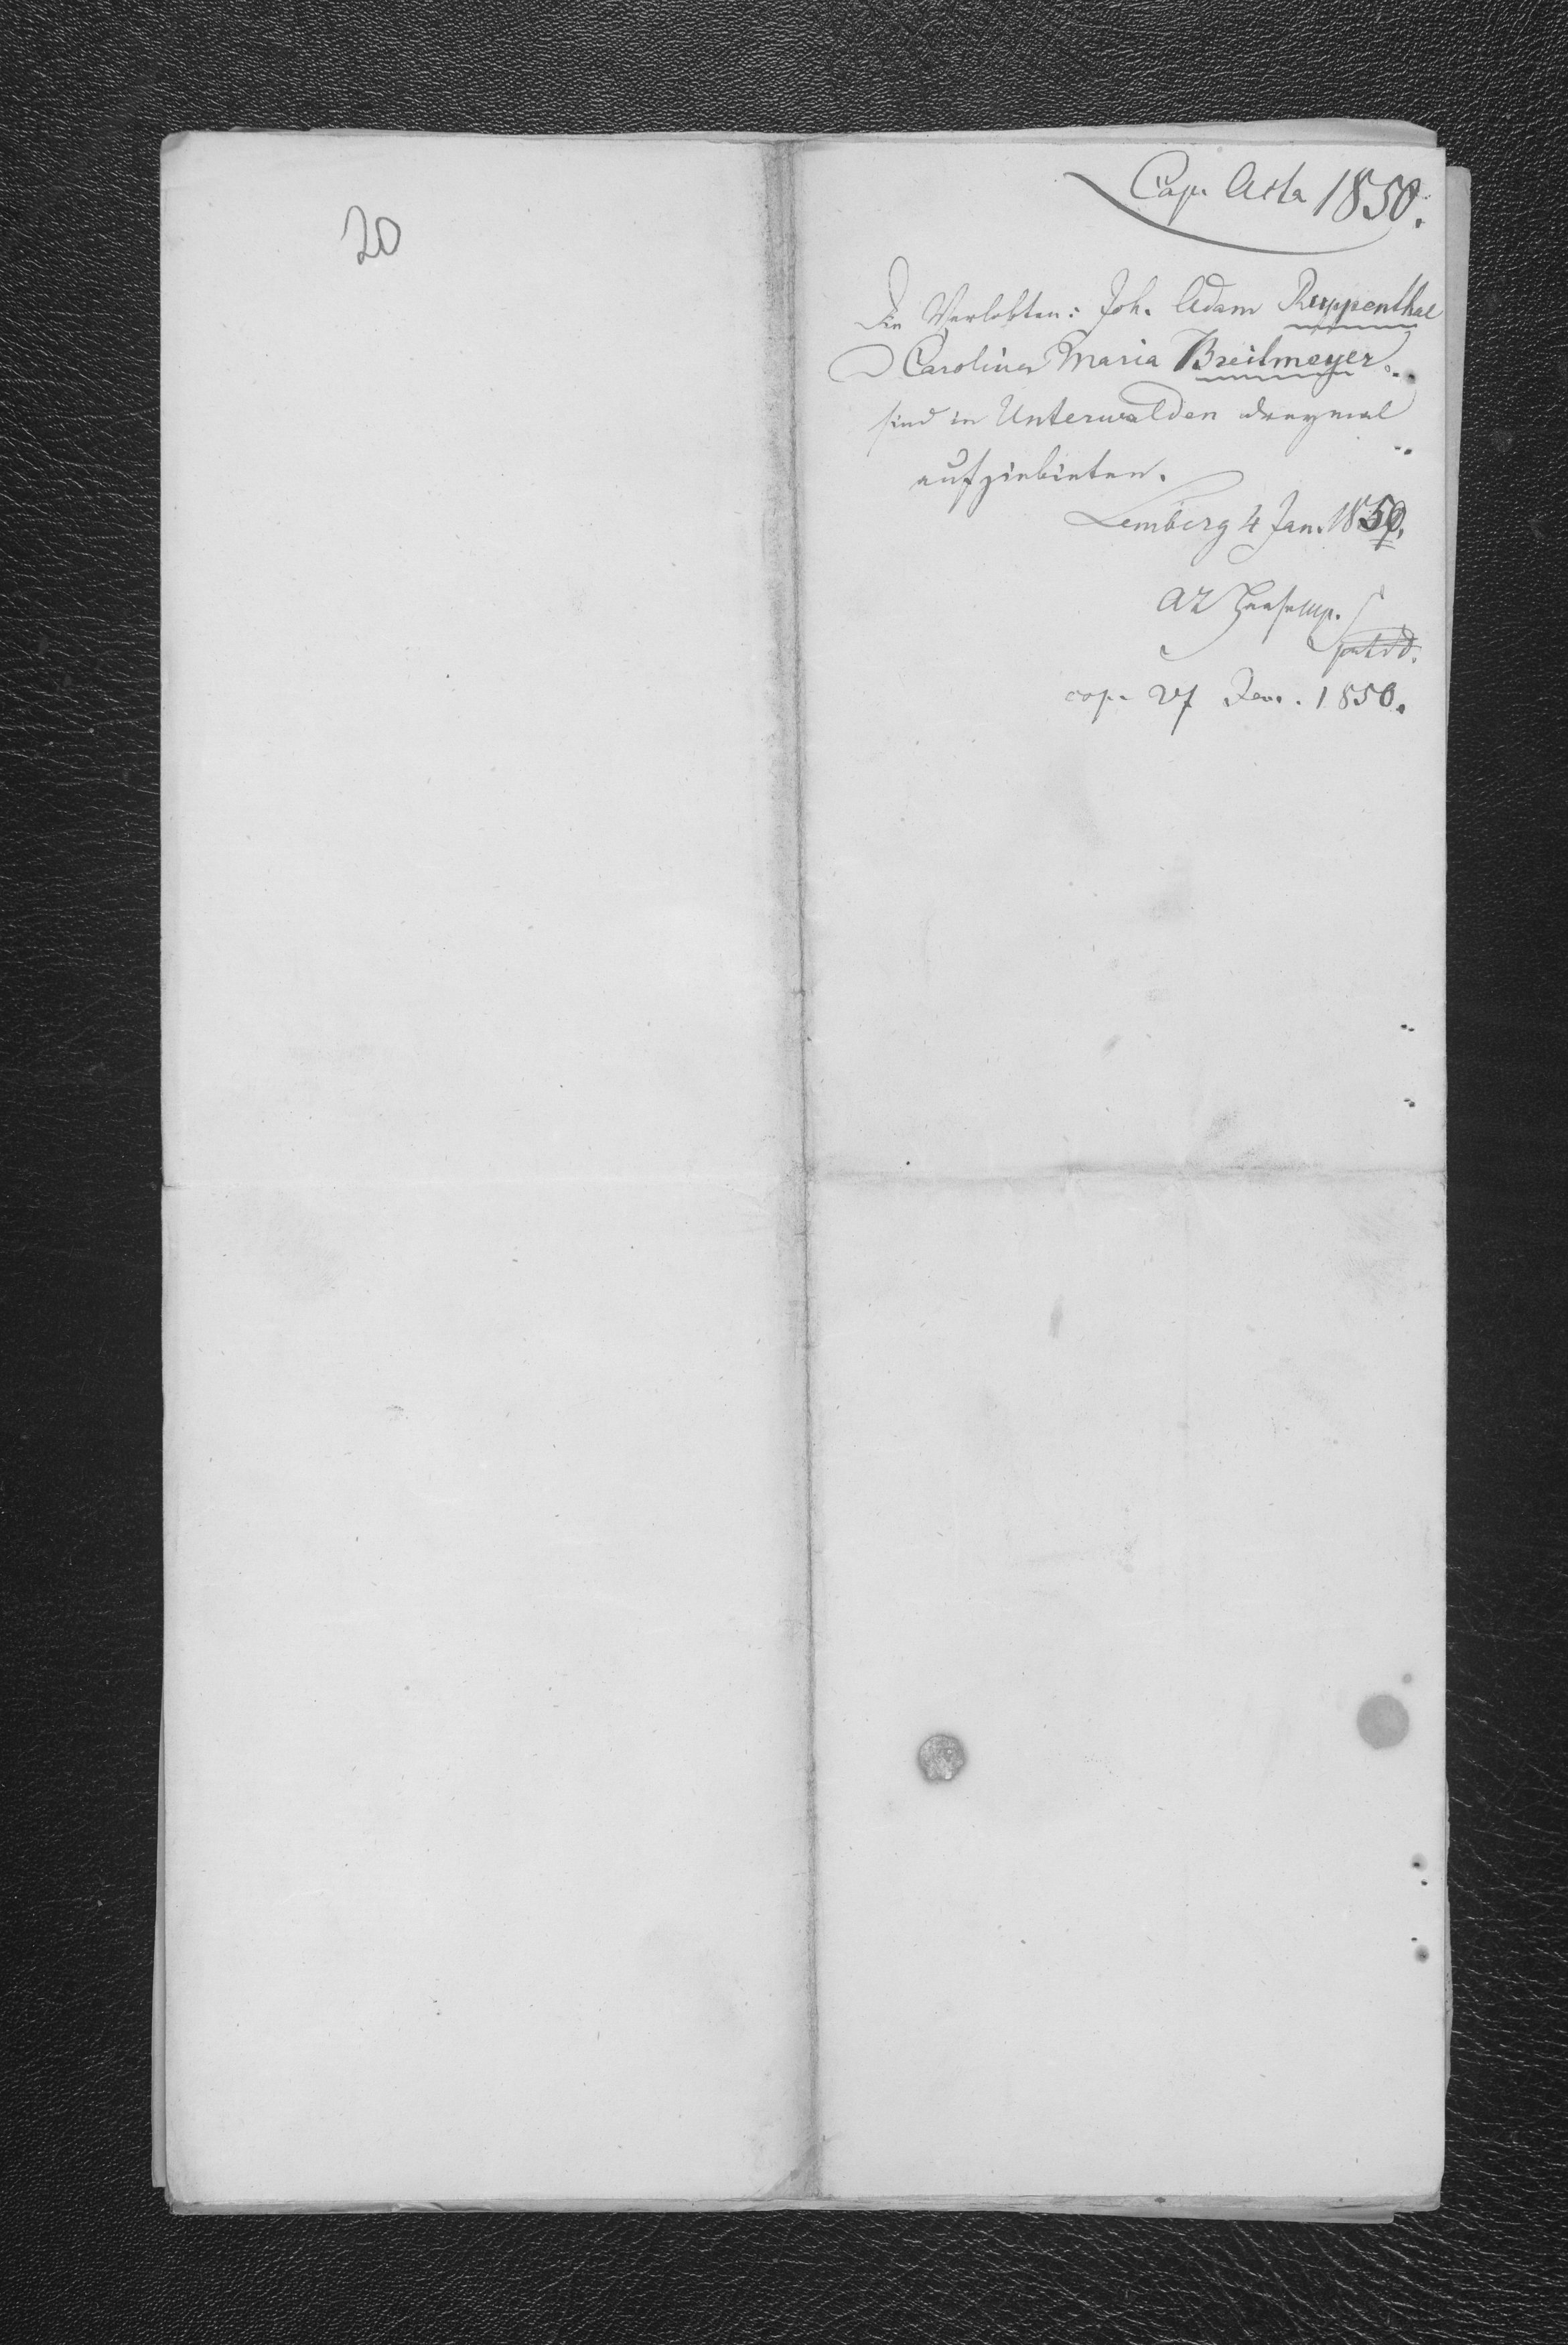 20
Cop. Acta 1850.
Die Verlobten: Joh. Adam Ruppenthal
Carolina Maria Breitmeyer
sind in Unterwalden dreymal
aufzubieten.
Lemberg 4 Jan. 1850.
Haase mp.
cop. 27 Jan. 1850.